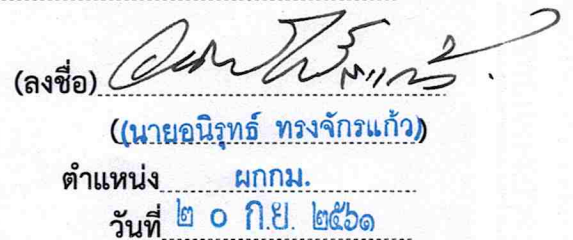 (ลงชื่อ)
((นายอนิรุทธ์ ทรงจักรแก้ว))
ตำแหน่ง ผกกม.
วันที่ ๒ ๐ ก.ย. ๒๕๖๑